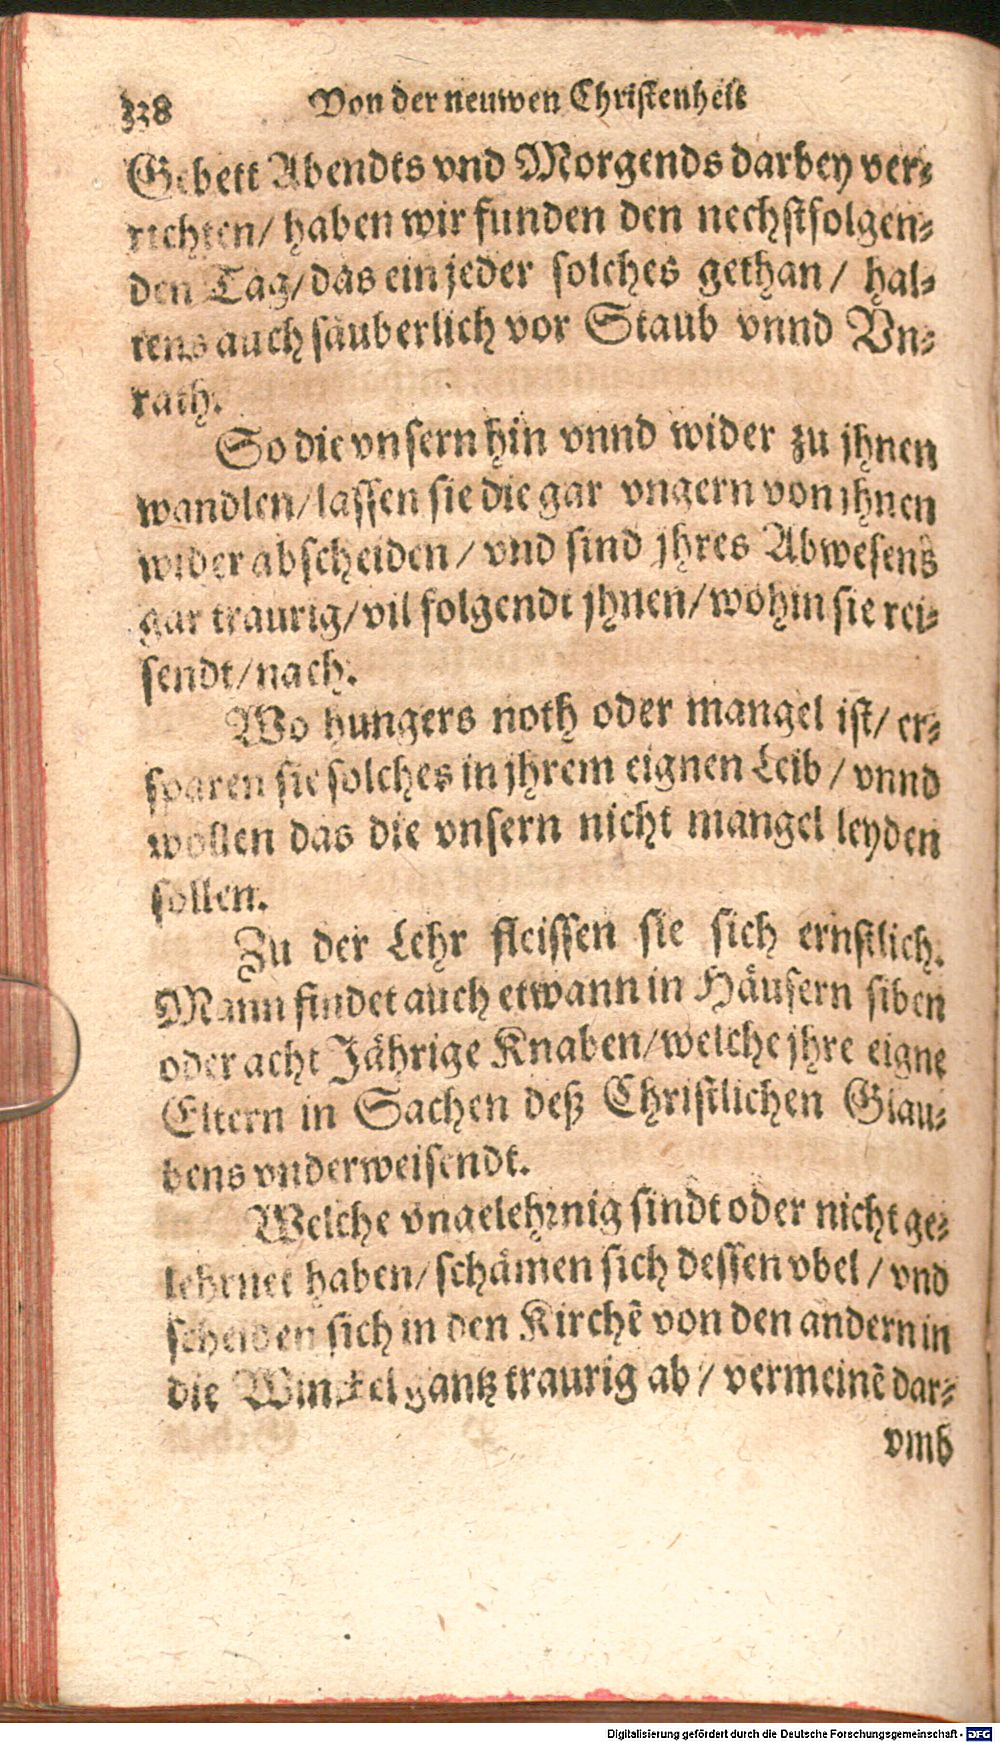 338 Von der neuwen Christenheit
Gebett Abendts vnd Morgends darbey ver-
richten/ haben wir funden den nechstfolgen-
den Tag/ das ein jeder solches gethan/ hal-
tens auch säuberlich vor Staub vnnd Vn-
rath.
So die vnsern hin vnnd wider zu jhnen
wandlen/ lassen sie die gar vngern von jhnen
wider abscheiden/ vnd sind jhres Abwesens
gar traurig/ vil folgendt jhnen/ wohin sie rei-
sendt/ nach.
Wo hungers noth oder mangel ist/ er-
sparen sie solches in jhrem eignen Leib/ vnnd
wollen das die vnsern nicht mangel leyden
sollen.
Zu der Lehr fleissen sie sich ernstlich.
Mann findet auch etwann in Häusern siben
oder acht Jährige Knaben/ welche jhre eigne
Eltern in Sachen deß Christlichen Glau-
bens vnderweisendt.
Welche vngelehrnig sindt oder nicht ge-
lehrnet haben/ schämen sich dessen vbel/ vnd
scheiden sich in den Kirchẽ von den andern in
die Winckel gantz traurig ab/ vermeinẽ dar-
vmb
Digitalisierung gefördert durch die Deutsche Forschungsgemeinschaft - DFG